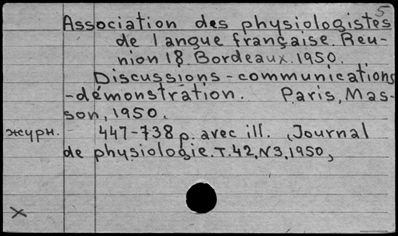 5
Association des physiologistes
de langue française. Reu-
nion 18. Bordeaux. 1950.
Discussions - communications
- démonstration. Paris, Mas-
son, 1950.
журн. 447-738 p. avec ill. ,Journal
de physiologie. T. 42, N3, 1950,
x